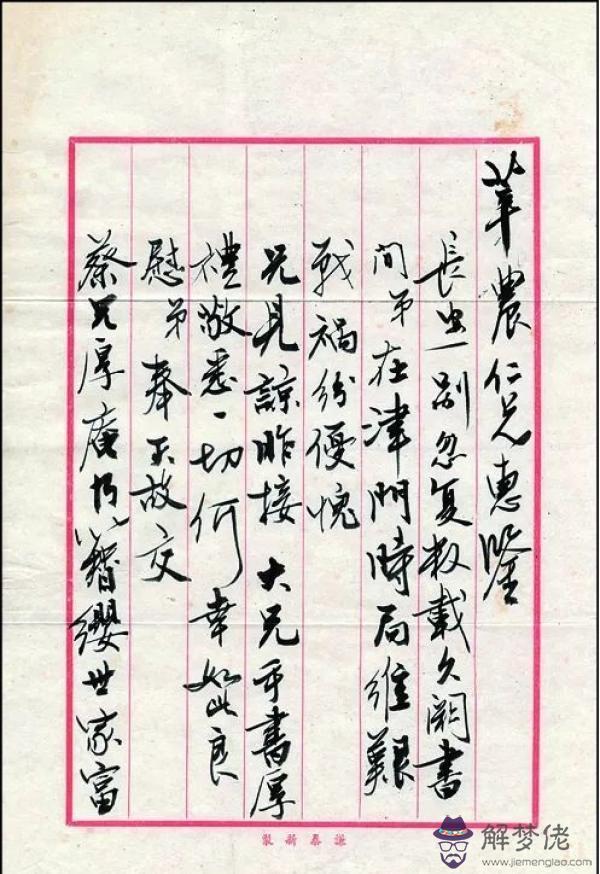 華農仁兄惠鑒
長一别忽复數載久阙書
間弟在津門時局維艱
戰禍纷優愧
兄見諒昨接大兄手書厚
禮敬悉一切何幸如此良
慰弟奉天故交
蔡兄厚庵乃簪纓世家富
謙泰新製
解梦佬
www.jiemenglao.com